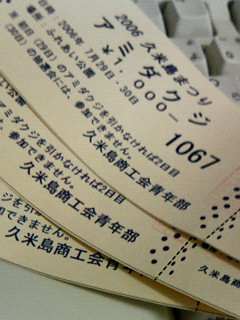 2006 久米島まつり
アミダクジ
¥1,000-
日時:2006年7月29日、30日
場所:ふれあい公園
当初日(29日)のアミダクジを引かなければ2日目
(30日)の抽選会には、参加できません。
久米島商工会青年部
1067
のアミダクジを引かなければ2日目
参加できません。
久米島商工会青年部
ジを引かなければ2日目
できません。
久米島商工会青年部
久米島商